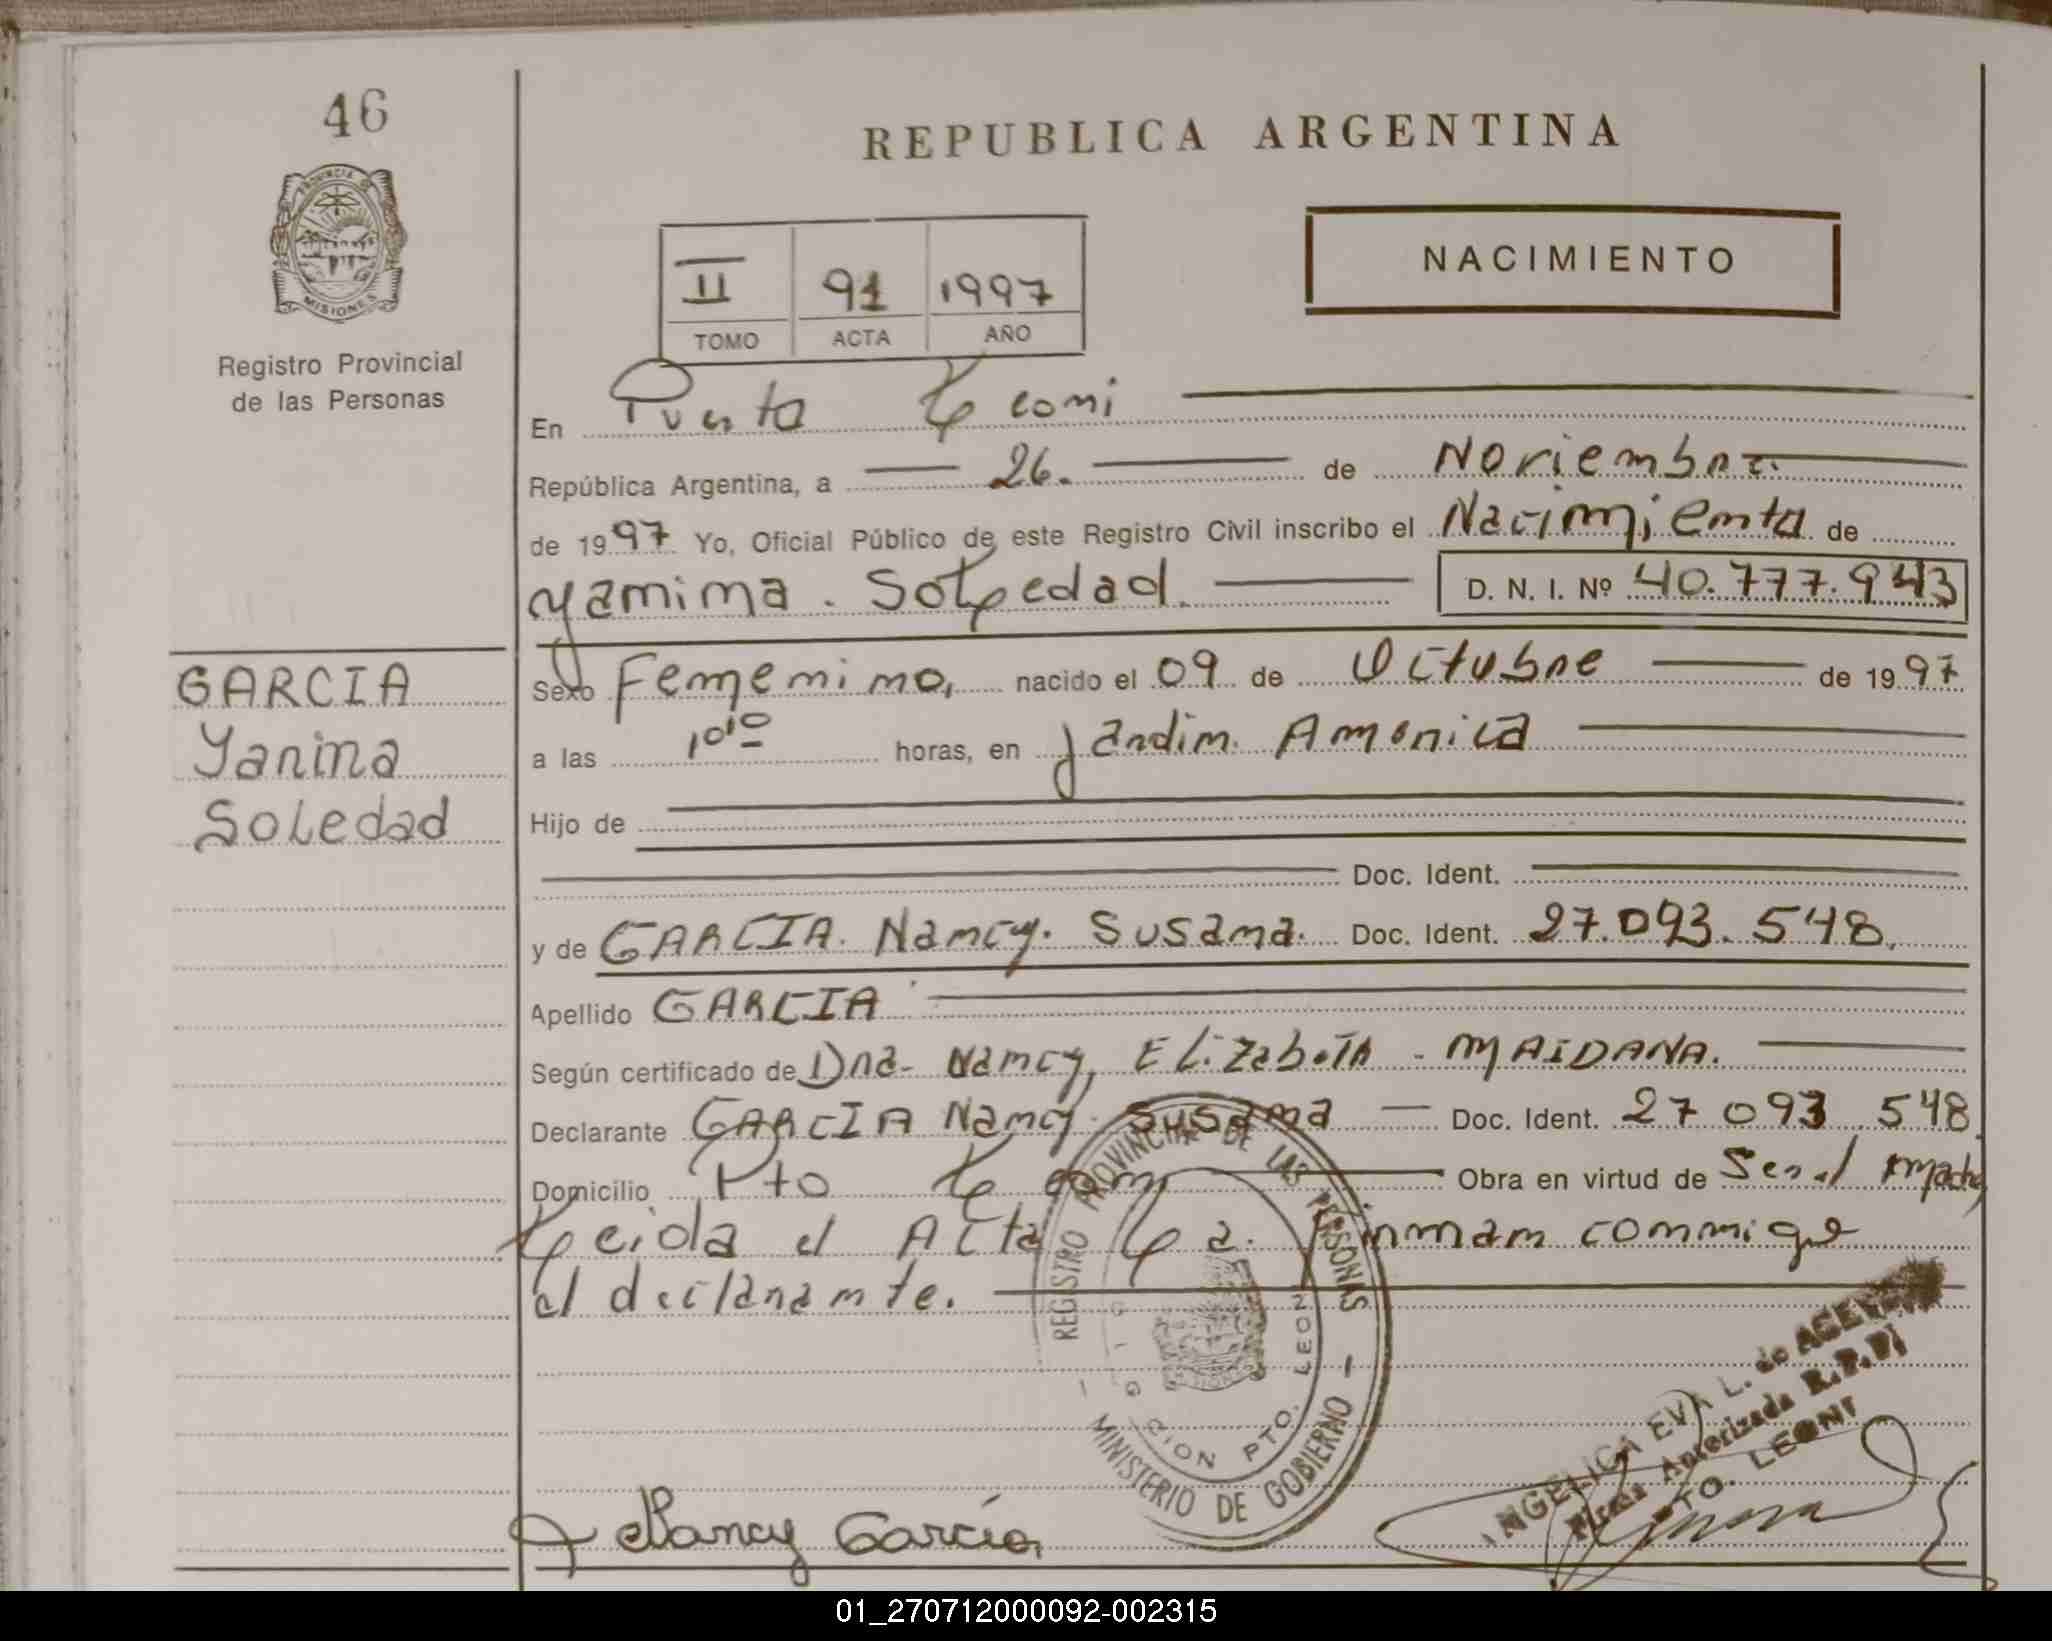 46
PROVINCIA DE
MISIONES
Registro Provincial
de las Personas
REPUBLICA ARGENTINA
NACIMIENTO
II 91 1997
TOMO ACTA AÑO
En Puerto Leoni
República Argentina, a 26. de Noviembre.
de 1997 Yo, Oficial Público de este Registro Civil inscribo el Nacimiento de
Yanina. Soledad. D. N. I. Nº 40.777.943
GARCIA
Yanina
Soledad
Sexo Femenino, nacido el 09 de Octubre de 1997
a las 10¹⁰ horas, en Jardin. America
Hijo de
Doc. Ident.
y de GARCIA. Nancy. Susana. Doc. Ident. 27.093.548.
Apellido GARCIA
Según certificado de Dna- Nancy, Elizabeth - MAIDANA.
Declarante GARCIA Nancy. Susana Doc. Ident. 27 093 548.
Domicilio Pto Leoni Obra en virtud de Ser el
Leida el Acta La. Firman conmigo
el declarante.
REGISTRO PROVINCIAL DE LAS PERSONAS
MINISTERIO DE GOBIERNO
PTO. LEONI
ANGELICA EVA L. de
Autorizada R.P.P.
PTO. LEONI
Nancy Garcia
01_270712000092-002315